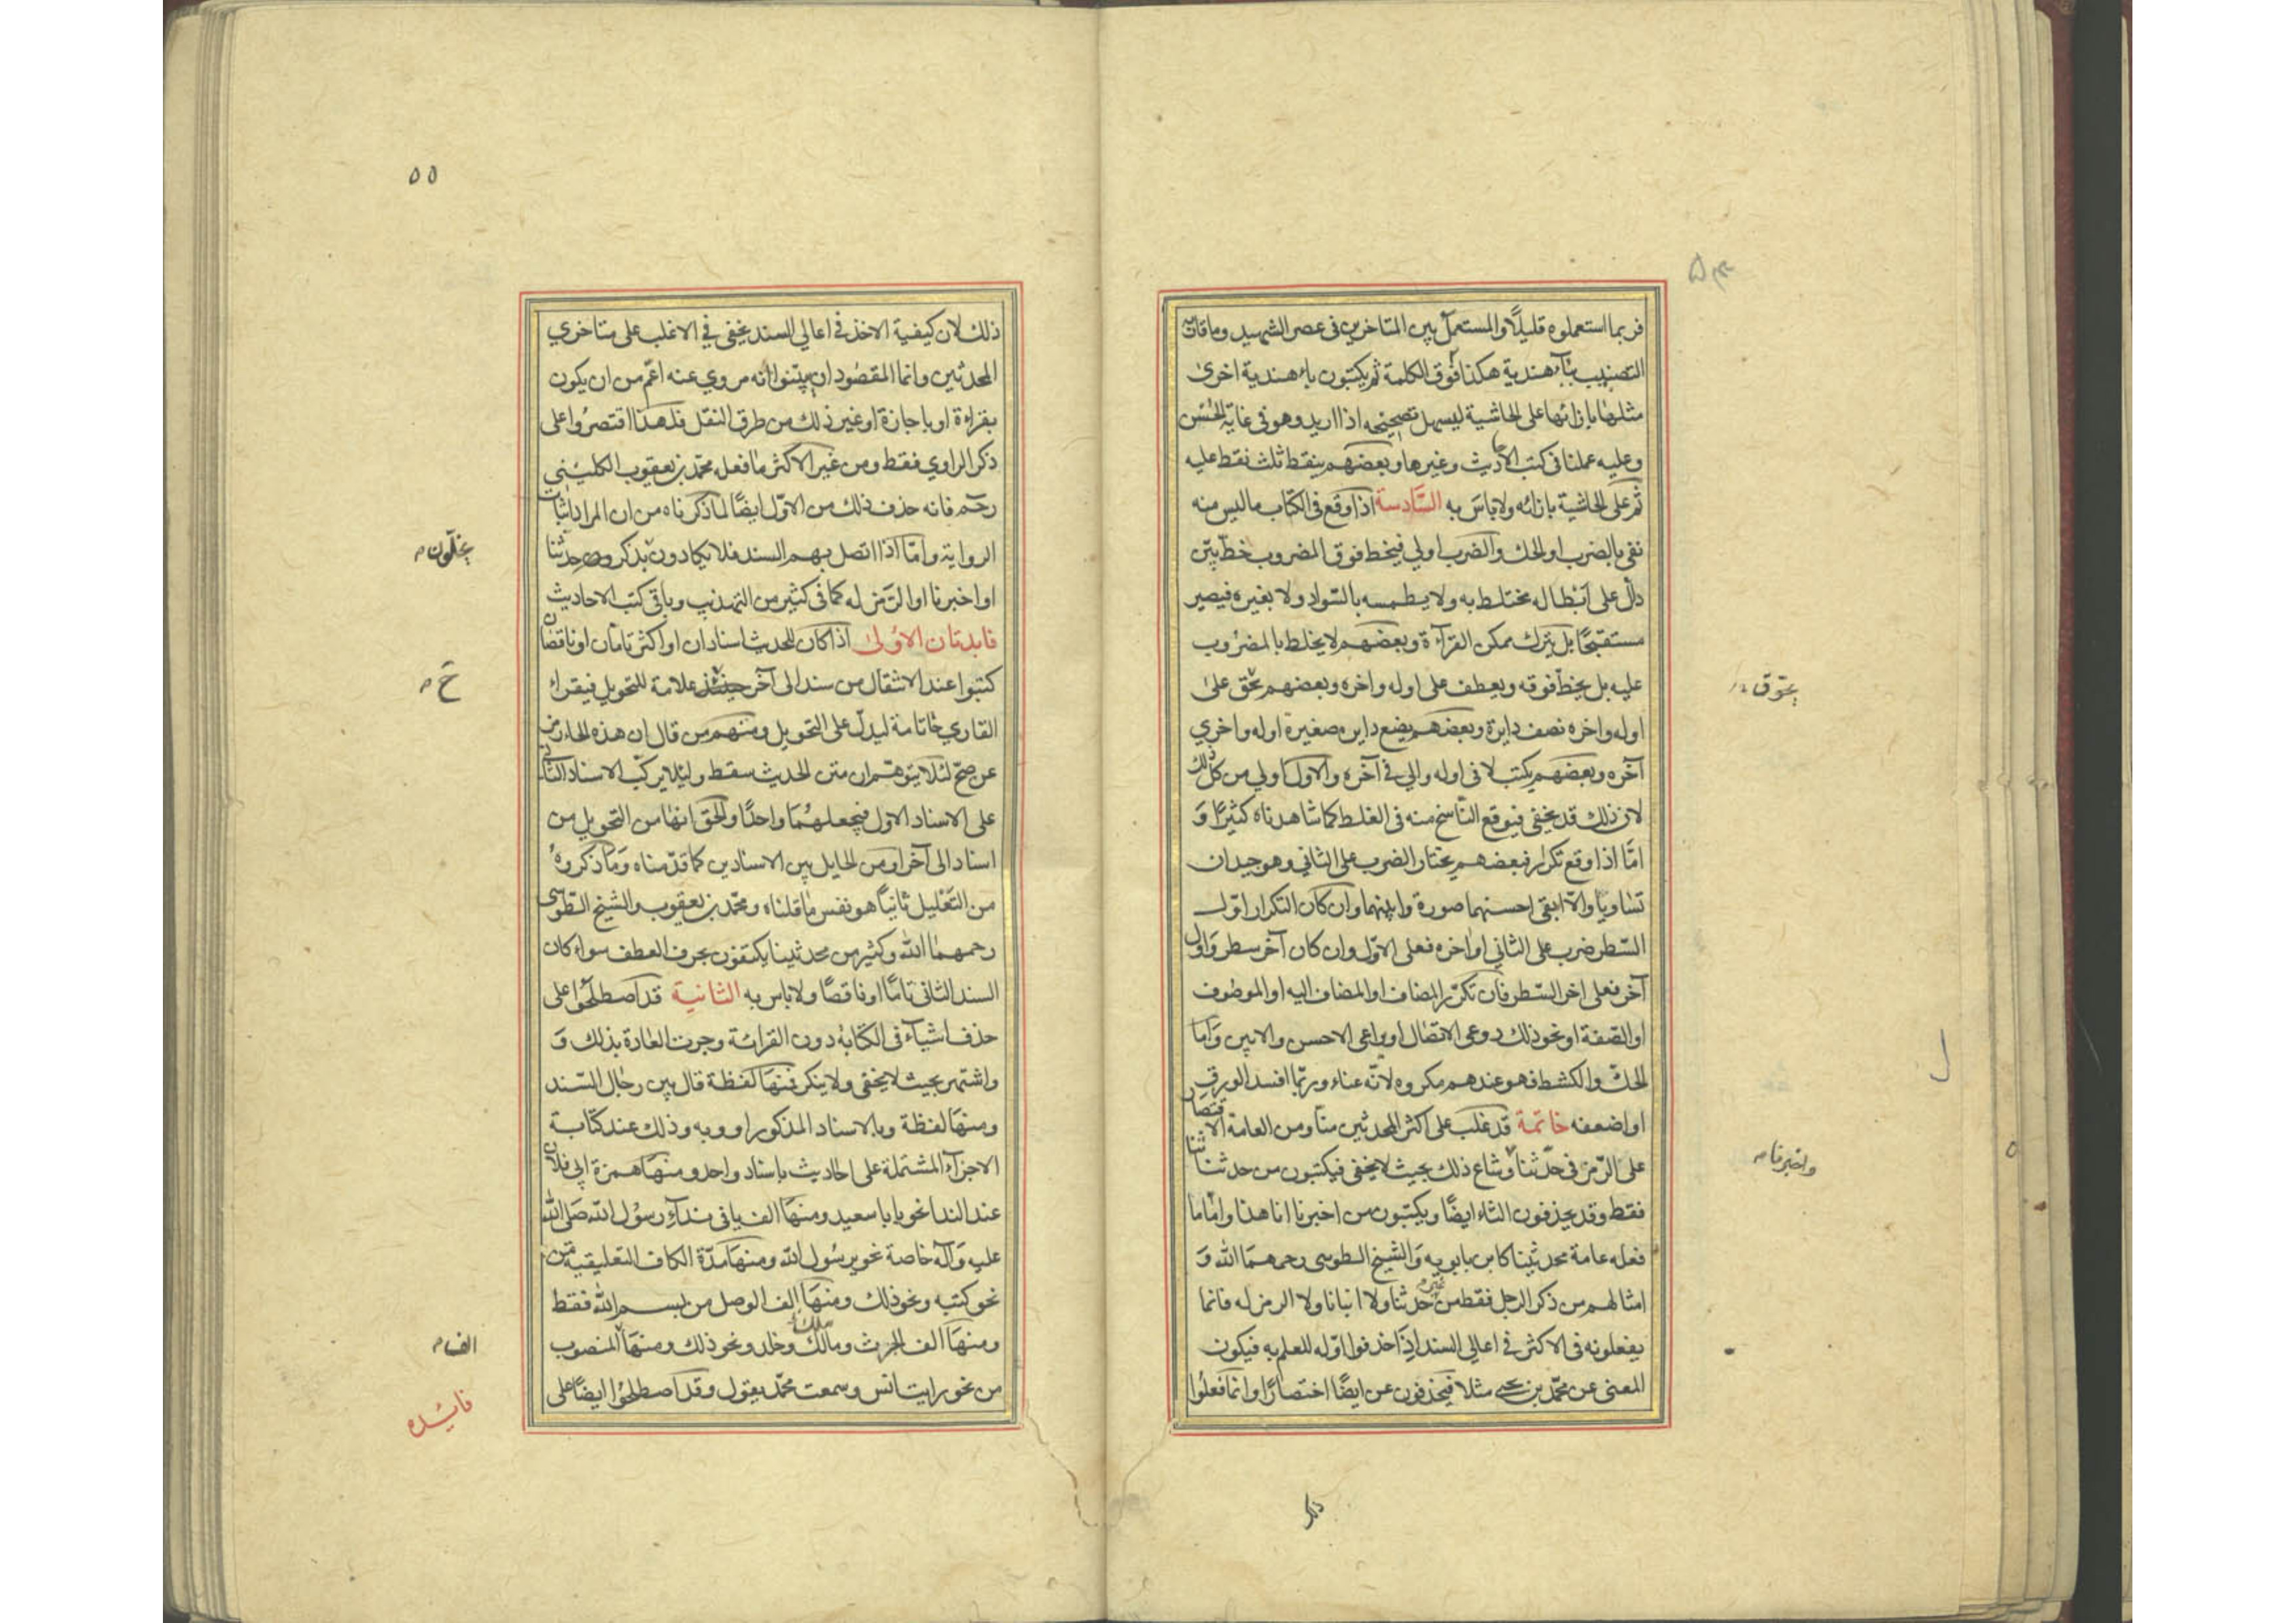 فربما استعملوه قليلًا والمستعمل بين المتاخرين في عصر الشهيد وما قاربه
التصبيب بآء هندية هكذا فوق الكلمة ثم يكتبون باء هندية اخرى
مثلها بازائها على الحاشية ليسهل تصحيحه اذا اريد وهو في غاية الحُسْن
وعليه عملنا في كتب الاحاديث وغيرها وبعضهم ينقط ثلث نقط عليه
ثم على الحاشية بازائه ولا باس به السَّادسة اذا وقع في الكتاب ما ليس منه
نفي بالضرب او الحك والضرب اولي فيخط فوق المضروب خط بيّن
دالّ على ابطاله مختلط به ولا يطمسه بالسّواد ولا بغيره فيصير
مستقبحًا بل يترك ممكن القرآءة وبعضهم لا يخلط بالمضروب
عليه بل يخط فوقه ويعطف على اوله واخره وبعضهم يحوّق على
اوله واخره نصف دايرة وبعضهم يضع دايره صغيرة اوله واخري
آخره وبعضهم يكتب لا في اوله والي في آخره والاول اولي من كل ذلك
لان ذلك قد يخفى فيوقع النّاسخ منه في الغلط كما شاهدناه كثيرًا وَ
امّا اذا وقع تكرار فبعضهم يختار الضرب على الثاني وهو جيد ان
تساويا والّا ابقي احسنهما صورة وابينهما وان كان التكرار اوّل
السّطر ضرب على الثاني او اخره فعلى الاوّل وان كان آخر سطر وَاول
آخر فعلى اخر السّطر فان تكرّر المضاف او المضاف اليه او الموصوف
او الصّفة او نحو ذلك روعي الاتصال او يراعي الاحسن والابين وَاما
الحكّ والكشط فهو عندهم مكروه لانّه عناء وربّما افسد الورق
او اضعفه خاتمة قد غلب على اكثر المحدثين منّا ومن العامة الاقتصار
على الرّمز في حدّثنا وشاع ذلك بحيث لا يخفى فيكتبون من حدثنا ثنا
فقط وقد يحذفون الثاء ايضًا ويكتبون من اخبرنا انا هذا وامّا ما
فعله عامة محدثينا كابن بابويه وَالشيخ الطوسي رحمهمَا الله وَ
امثالهم من ذكر الرجل فقط من غير حدثنا ولا انبانا ولا الرمز له فانما
يفعلونه في الاكثر في اعالي السند اذا حذفوا اوّله للعلم به فيكون
المعنى عن محمّد بن يحيى مثلا فيحذفون عن ايضًا اختصارًا وانما فعلُوا
يحوّق
واخبرنا
ذلك
٥٥
ذلك لان كيفية الاخذ في اعالي السند يخفى في الاغلب على متاخري
المحدثين وانما المقصود ان يبيّنوا انه مروي عنه اعّم من ان يكون
بقراءة او باجازة او غير ذلك من طرق النقل فلهذا اقتصرُوا على
ذكر الراوي فقط ومن غير الاكثر ما فعله محمّد بن يعقوب الكليني
رحمه فانه حذف ذلك من الاوّل ايضًا لما ذكرناه من ان المراد اثبات
الرواية وامّا اذا اتصل بهم السند فلا يكادون بذكر حدثنا
او اخبرنا او الرّمز له كما في كثير من التهذيب وباقي كتب الاحاديث
فايدتان الاولى اذا كان للحديث اسنادان او اكثر تامّان او ناقصان
كتبوا عند الانتقال من سند الى آخر علامة للتحويل فيقراء
القاري حا تامة ليدلّ على التحويل ومنهم من قال ان هذه الحاء رمز
عن صحّ لئلا يتوهّم ان متن الحديث سقط ولئلا يركّب الاسناد الثاني
على الاسناد الاول فيجعلهُمَا واحدًا والحق انها من التحويل من
اسناد الى آخر او من الحايل بين الاسنادين كما قدّمناه وَما ذكروهُ
من التعْليل ثانيًا هو نفس ما قلناه ومحمّد بن يعقوب والشيخ الطّوسي
رحمهمَا الله وكثير من محدثينا يكتفون بحرف العطف سواء كان
السند الثاني تامًا او ناقصًا ولا باس به الثانية قد اصطلحوا على
حذف اشياء في الكتابة دون القرائة وجرت العادة بذلك وَ
واشتهر بحيث لا يخفى ولا ينكر فمنهَا لفظة قال بين رجال السّند
ومنهَا لفظة وبالاسناد المذكور او وبه وذلك عند كتابة
الاجزآء المشتملة على احاديث باسناد واحد ومنهَا همزة ابي فلان
عند الندا نحو يا با سعيد ومنهَا الف يا في ندآء رسول الله صَلى الله
عليه وَآله خاصة نحو يرسُول الله ومنهَا مدّة الكاف التعليقية من
نحو كتبه ونحو ذلك ومنهَا الف الوصل من بسم الله فقط
ومنهَا الف الحرث ومالك وخلد ونحو ذلك ومنهَا المنصوب
من نحو رايت انس وسمعت محمّد يقول وقد اصطلحُوا ايضًا على
ح
الف
فايده